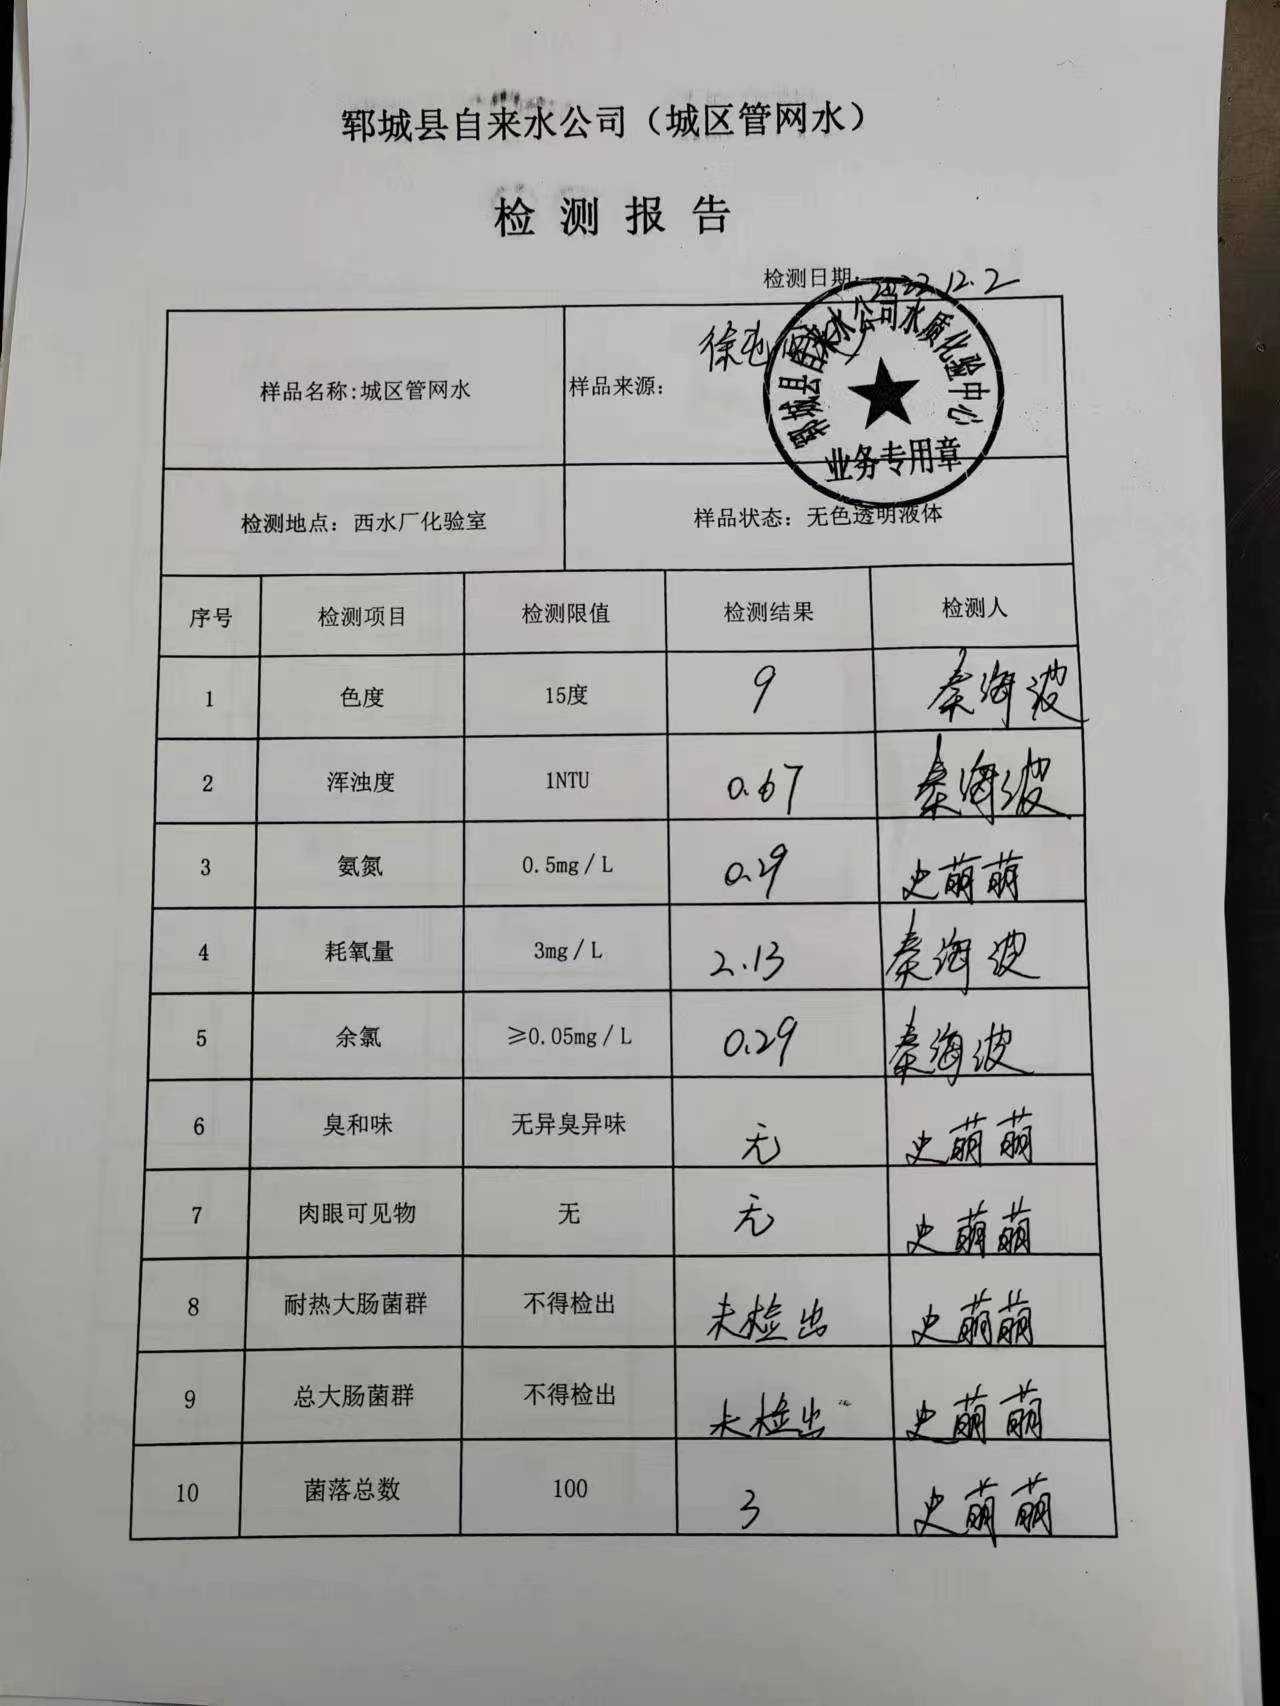 郓城县自来水公司（城区管网水）
检测报告
检测日期：2022.12.2
样品名称:城区管网水 样品来源： 徐屯
郓城县自来水公司水质化验中心
业务专用章
检测地点：西水厂化验室 样品状态：无色透明液体
序号 检测项目 检测限值 检测结果 检测人
1 色度 15度 9 秦海波
2 浑浊度 1NTU 0.67 秦海波
3 氨氮 0.5mg/L 0.29 史萌萌
4 耗氧量 3mg/L 2.13 秦海波
5 余氯 ≥0.05mg/L 0.29 秦海波
6 臭和味 无异臭异味 无 史萌萌
7 肉眼可见物 无 无 史萌萌
8 耐热大肠菌群 不得检出 未检出 史萌萌
9 总大肠菌群 不得检出 未检出 史萌萌
10 菌落总数 100 3 史萌萌